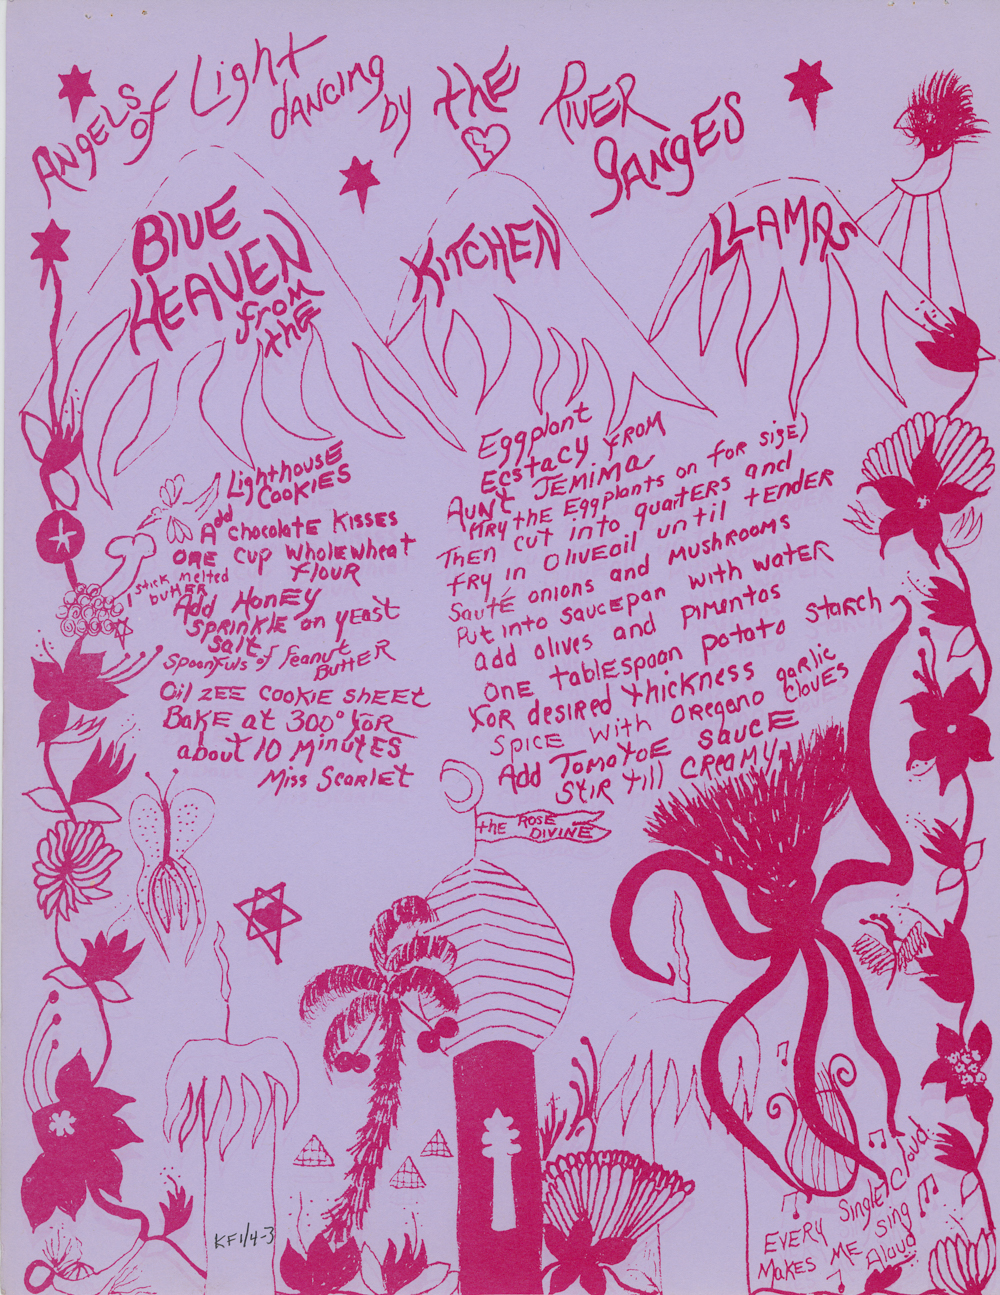 ANGELS of Light dANCiNg by thE RiVER gANgES
BlUE HEAVEN from thE
KiTCHEN
LLAMAS
LighthousE
COOKiES
Add Chocolate KissEs
onE cup Wholewheat
flour
1 stick melted
buttER
Add HonEy
SprinklE on yEast
Salt
Spoonfuls of Peanut
ButtER
Oil ZEE cookiE shEEt
BakE at 300° for
about 10 MinutES
Miss ScarlEt
Eggplant
Ecstacy from
Aunt JEMiMA
(try thE Eggplants on for sizE)
ThEn cut into quartERs and
fry in Oliveoil until tENdER
Sauté onions and mushrooms
Put into saucEpan with watER
add olivEs and pimentos
onE tablEspoon potato starch
for dEsirEd thicknEss
SpicE with OrEgano garlic cloves
Add TomatoE saucE
Stir till CrEamy
thE RosE
DiViNE
EVERy SinglE Cloud
MakEs ME Sing
Aloud
KF1/4-3